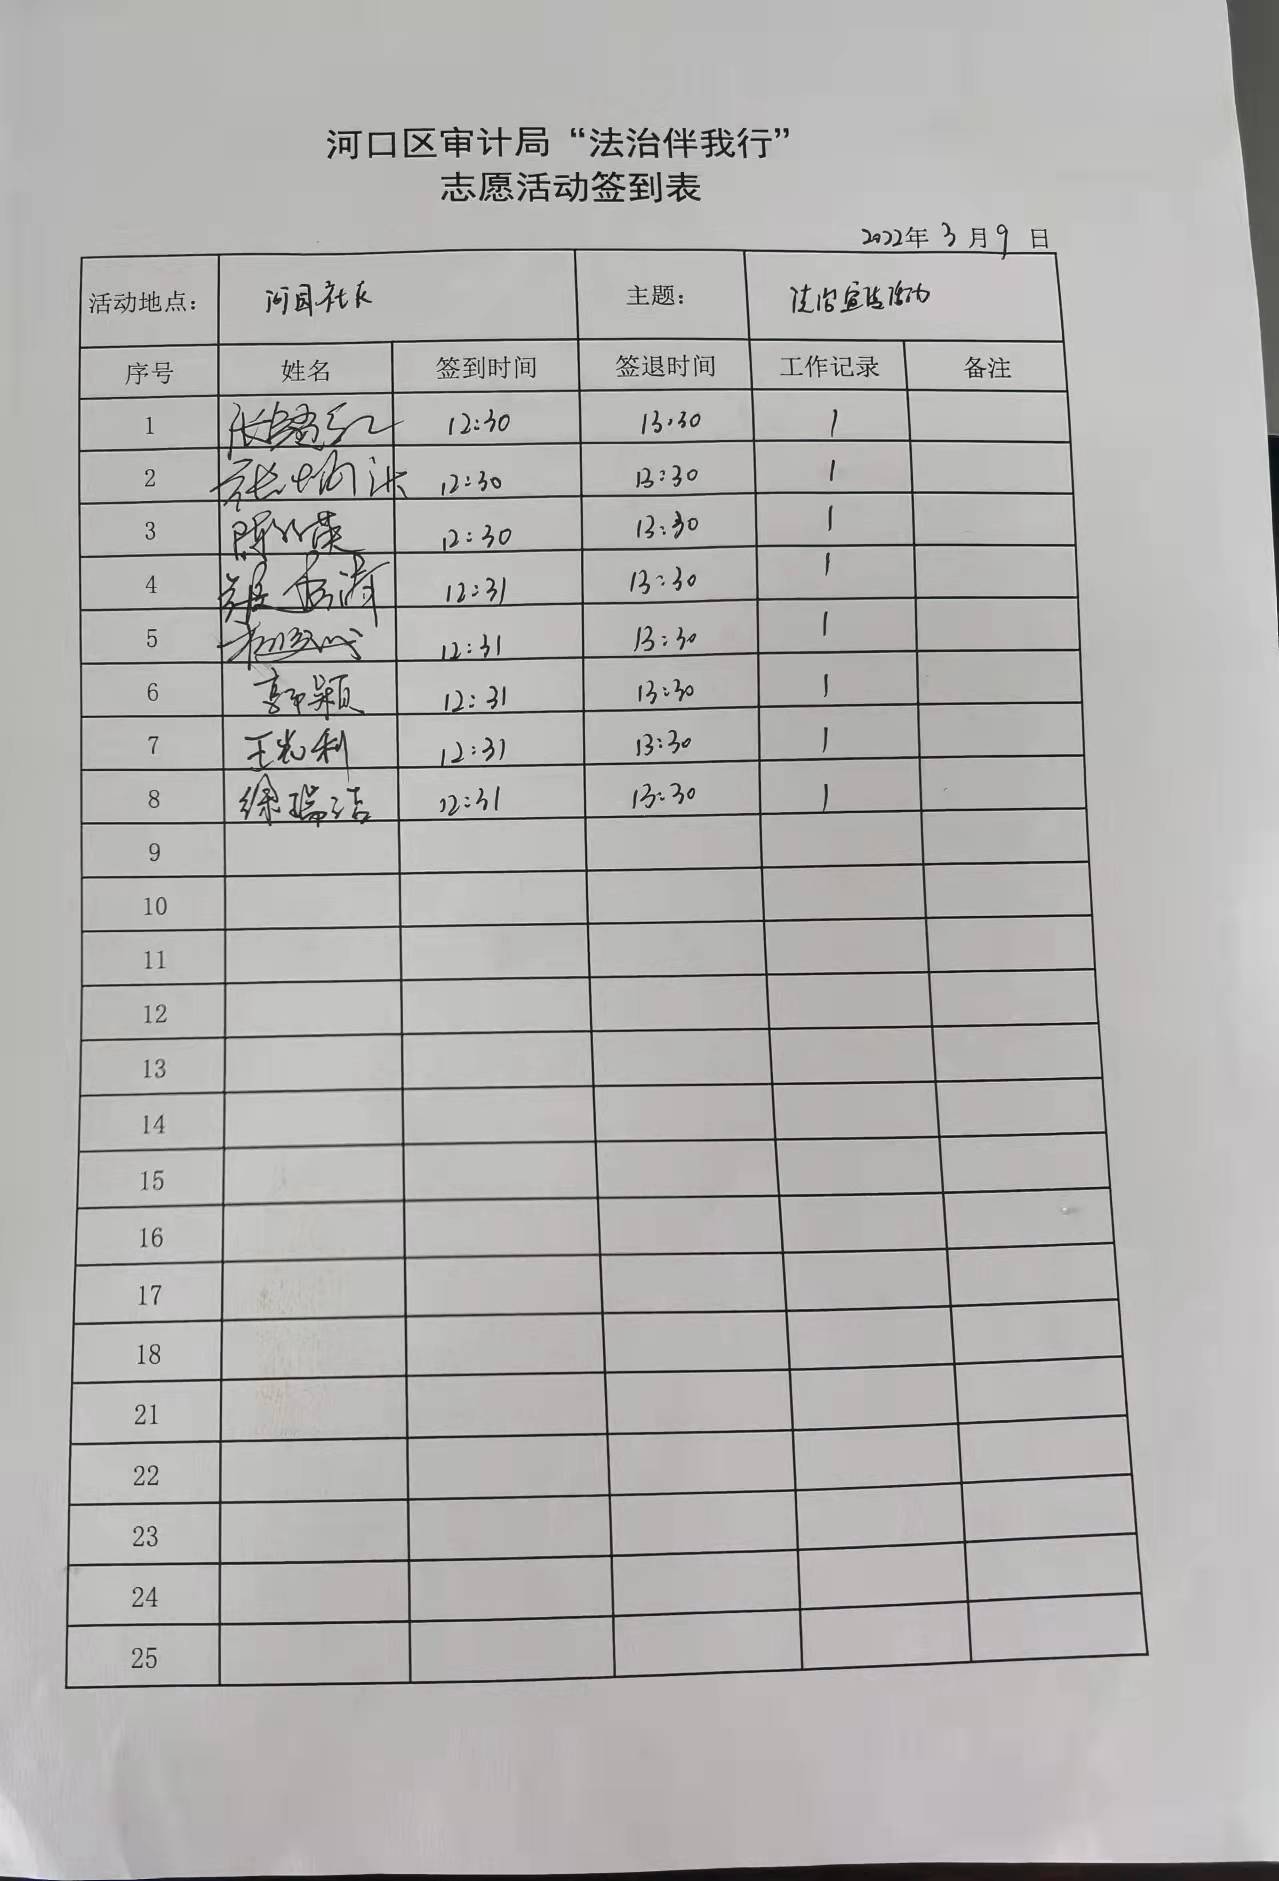 河口区审计局“法治伴我行”
志愿活动签到表
2022年 3 月 9 日
活动地点： 河园社区 主题： 法治宣传活动
序号 姓名 签到时间 签退时间 工作记录 备注
1 12:30 13:30 1
2 12:30 13:30 1
3 12:30 13:30 1
4 12:31 13:30 1
5 12:31 13:30 1
6 郭颖 12:31 13:30 1
7 王光利 12:31 13:30 1
8 徐瑞洁 12:31 13:30 1
9
10
11
12
13
14
15
16
17
18
21
22
23
24
25